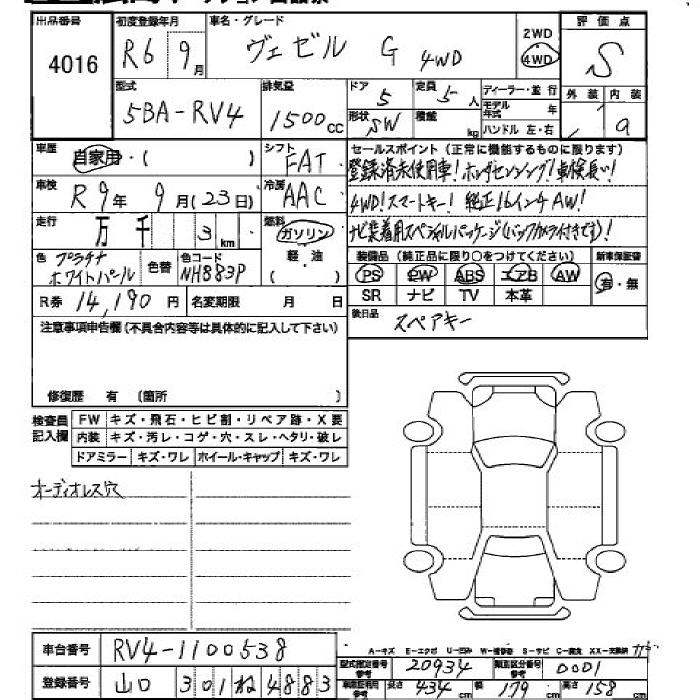 出品番号 初度登録年月 車名・グレード 評価点
4016 R6 9月 ヴェゼル G 4WD 2WD 4WD S
型式 排気量 ドア 定員 ディーラー・並行 外装 内装
5BA-RV4 1500cc 5 5人 モデル年式 年 a
形状 SW 積載 kg ハンドル 左・右
車歴 自家用・( ) シフト FAT セールスポイント(正常に機能するものに限ります)
登録済未使用車!ホンダセンシング!車検長い!
車検 R9年 9月(23日) 冷房 AAC 4WD!スマートキー!純正16インチAW!
走行 万 千 3km 燃料 ガソリン ナビ装着用スペシャルパッケージ(バックカメラ付きです)!
軽・油
( )
色 プラチナホワイトパール 色替 色コード NH883P 装備品(純正品に限り○をつけてください) 新車保証書
PS PW ABS エアB AW 有・無
SR ナビ TV 本革
R券 14,190円 名変期限 月 日
後日品 スペアキー
注意事項申告欄(不具合内容等は具体的に記入して下さい)
修復歴 有 (箇所 )
検査員記入欄 FW キズ・飛石・ヒビ割・リペア跡・X要
内装 キズ・汚レ・コゲ・穴・スレ・ヘタリ・破レ
ドアミラー キズ・ワレ ホイール・キャップ キズ・ワレ
オーディオレス穴
車台番号 RV4-1100538
A-キズ E-エクボ U-凹み W-補修跡 S-サビ C-腐食 XX-交換済
型式指定番号参考 20934 類別区分番号参考 0001
登録番号 山口 301 ね 4883
車検証明用参考 長さ 434cm 幅 179cm 高さ 158cm